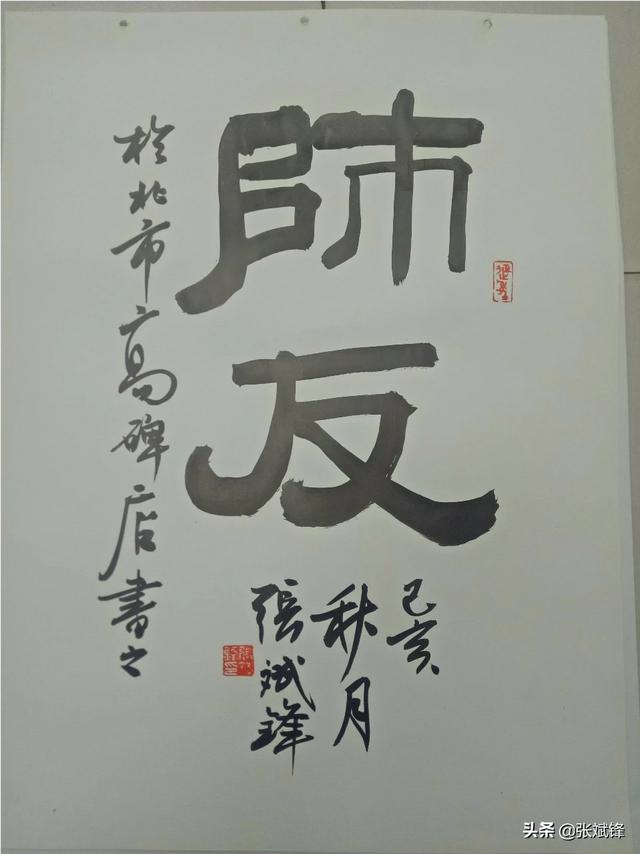 師友
己亥
秋月
張斌鋒
於北市高碑店書之
头条 @张斌锋